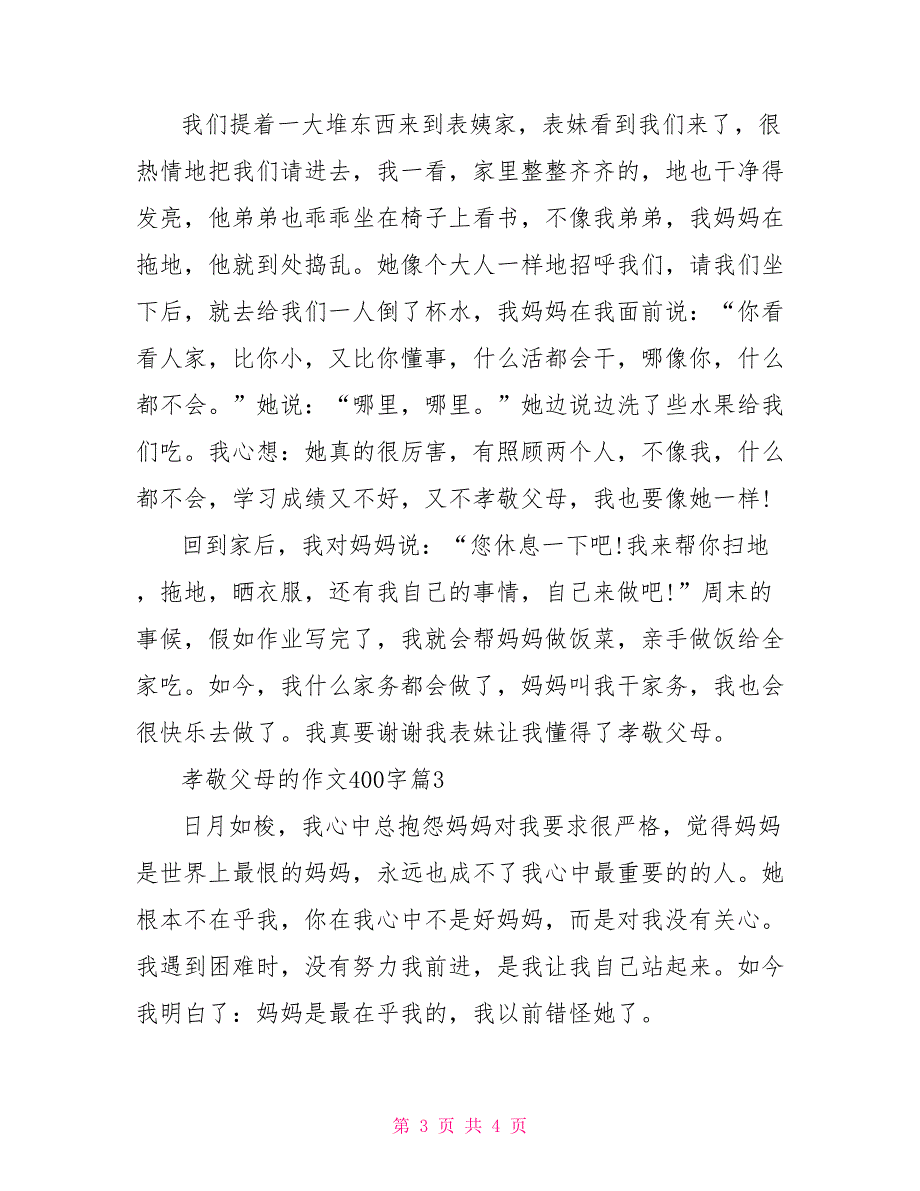 我们提着一大堆东西来到表姨家，表妹看到我们来了，很
热情地把我们请进去，我一看，家里整整齐齐的，地也干净得
发亮，他弟弟也乖乖坐在椅子上看书，不像我弟弟，我妈妈在
拖地，他就到处捣乱。她像个大人一样地招呼我们，请我们坐
下后，就去给我们一人倒了杯水，我妈妈在我面前说：“你看
看人家，比你小，又比你懂事，什么活都会干，哪像你，什么
都不会。”她说：“哪里，哪里。”她边说边洗了些水果给我
们吃。我心想：她真的很厉害，有照顾两个人，不像我，什么
都不会，学习成绩又不好，又不孝敬父母，我也要像她一样!
回到家后，我对妈妈说：“您休息一下吧!我来帮你扫地
，拖地，晒衣服，还有我自己的事情，自己来做吧!”周末的
事候，假如作业写完了，我就会帮妈妈做饭菜，亲手做饭给全
家吃。如今，我什么家务都会做了，妈妈叫我干家务，我也会
很快乐去做了。我真要谢谢我表妹让我懂得了孝敬父母。
孝敬父母的作文400字篇3
日月如梭，我心中总抱怨妈妈对我要求很严格，觉得妈妈
是世界上最恨的妈妈，永远也成不了我心中最重要的的人。她
根本不在乎我，你在我心中不是好妈妈，而是对我没有关心。
我遇到困难时，没有努力我前进，是我让我自己站起来。如今
我明白了：妈妈是最在乎我的，我以前错怪她了。
第 3 页 共 4 页